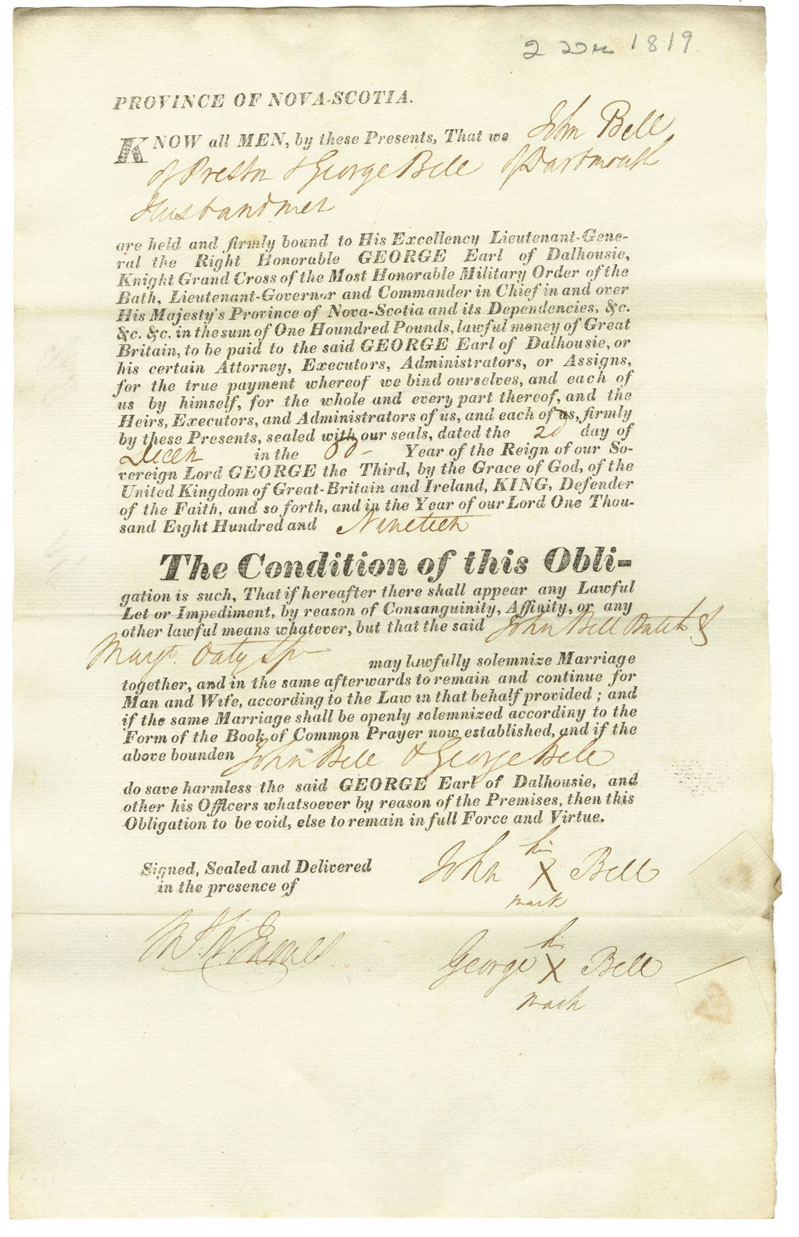 2 Dec 1819
PROVINCE OF NOVA-SCOTIA.
KNOW all MEN, by these Presents, That we John Bell
of Preston & George Bell of Dartmouth
Husbandmen
are held and firmly bound to His Excellency Lieutenant-Gene-
ral the Right Honorable GEORGE Earl of Dalhousie,
Knight Grand Cross of the Most Honorable Military Order of the
Bath, Lieutenant-Governor and Commander in Chief in and over
His Majesty's Province of Nova-Scotia and its Dependencies, &c.
&c. &c. in the sum of One Houndred Pounds, lawful money of Great
Britain, to be paid to the said GEORGE Earl of Dalhousie, or
his certain Attorney, Executors, Administrators, or Assigns,
for the true payment whereof we bind ourselves, and each of
us by himself, for the whole and every part thereof, and the
Heirs, Executors, and Administrators of us, and each of us, firmly
by these Presents, sealed with our seals, dated the 2d day of
Decem in the 60- Year of the Reign of our So-
vereign Lord GEORGE the Third, by the Grace of God, of the
United Kingdom of Great-Britain and Ireland, KING, Defender
of the Faith, and so forth, and in the Year of our Lord One Thou-
sand Eight Hundred and Nineteen
The Condition of this Obli-
gation is such, That if hereafter there shall appear any Lawful
Let or Impediment, by reason of Consanguinity, Affinity, or any
other lawful means whatever, but that the said John Bell Batch &
Margt. Daly Sp may lawfully solemnize Marriage
together, and in the same afterwards to remain and continue for
Man and Wife, according to the Law in that behalf provided; and
if the same Marriage shall be openly solemnized accordiny to the
Form of the Book of Common Prayer now established, and if the
above bounden John Bell & George Bell
do save harmless the said GEORGE Earl of Dalhousie, and
other his Officers whatsoever by reason of the Premises, then this
Obligation to be void, else to remain in full Force and Virtue.
Signed, Sealed and Delivered
in the presence of
John his X Bell
mark
George his X Bell
mark